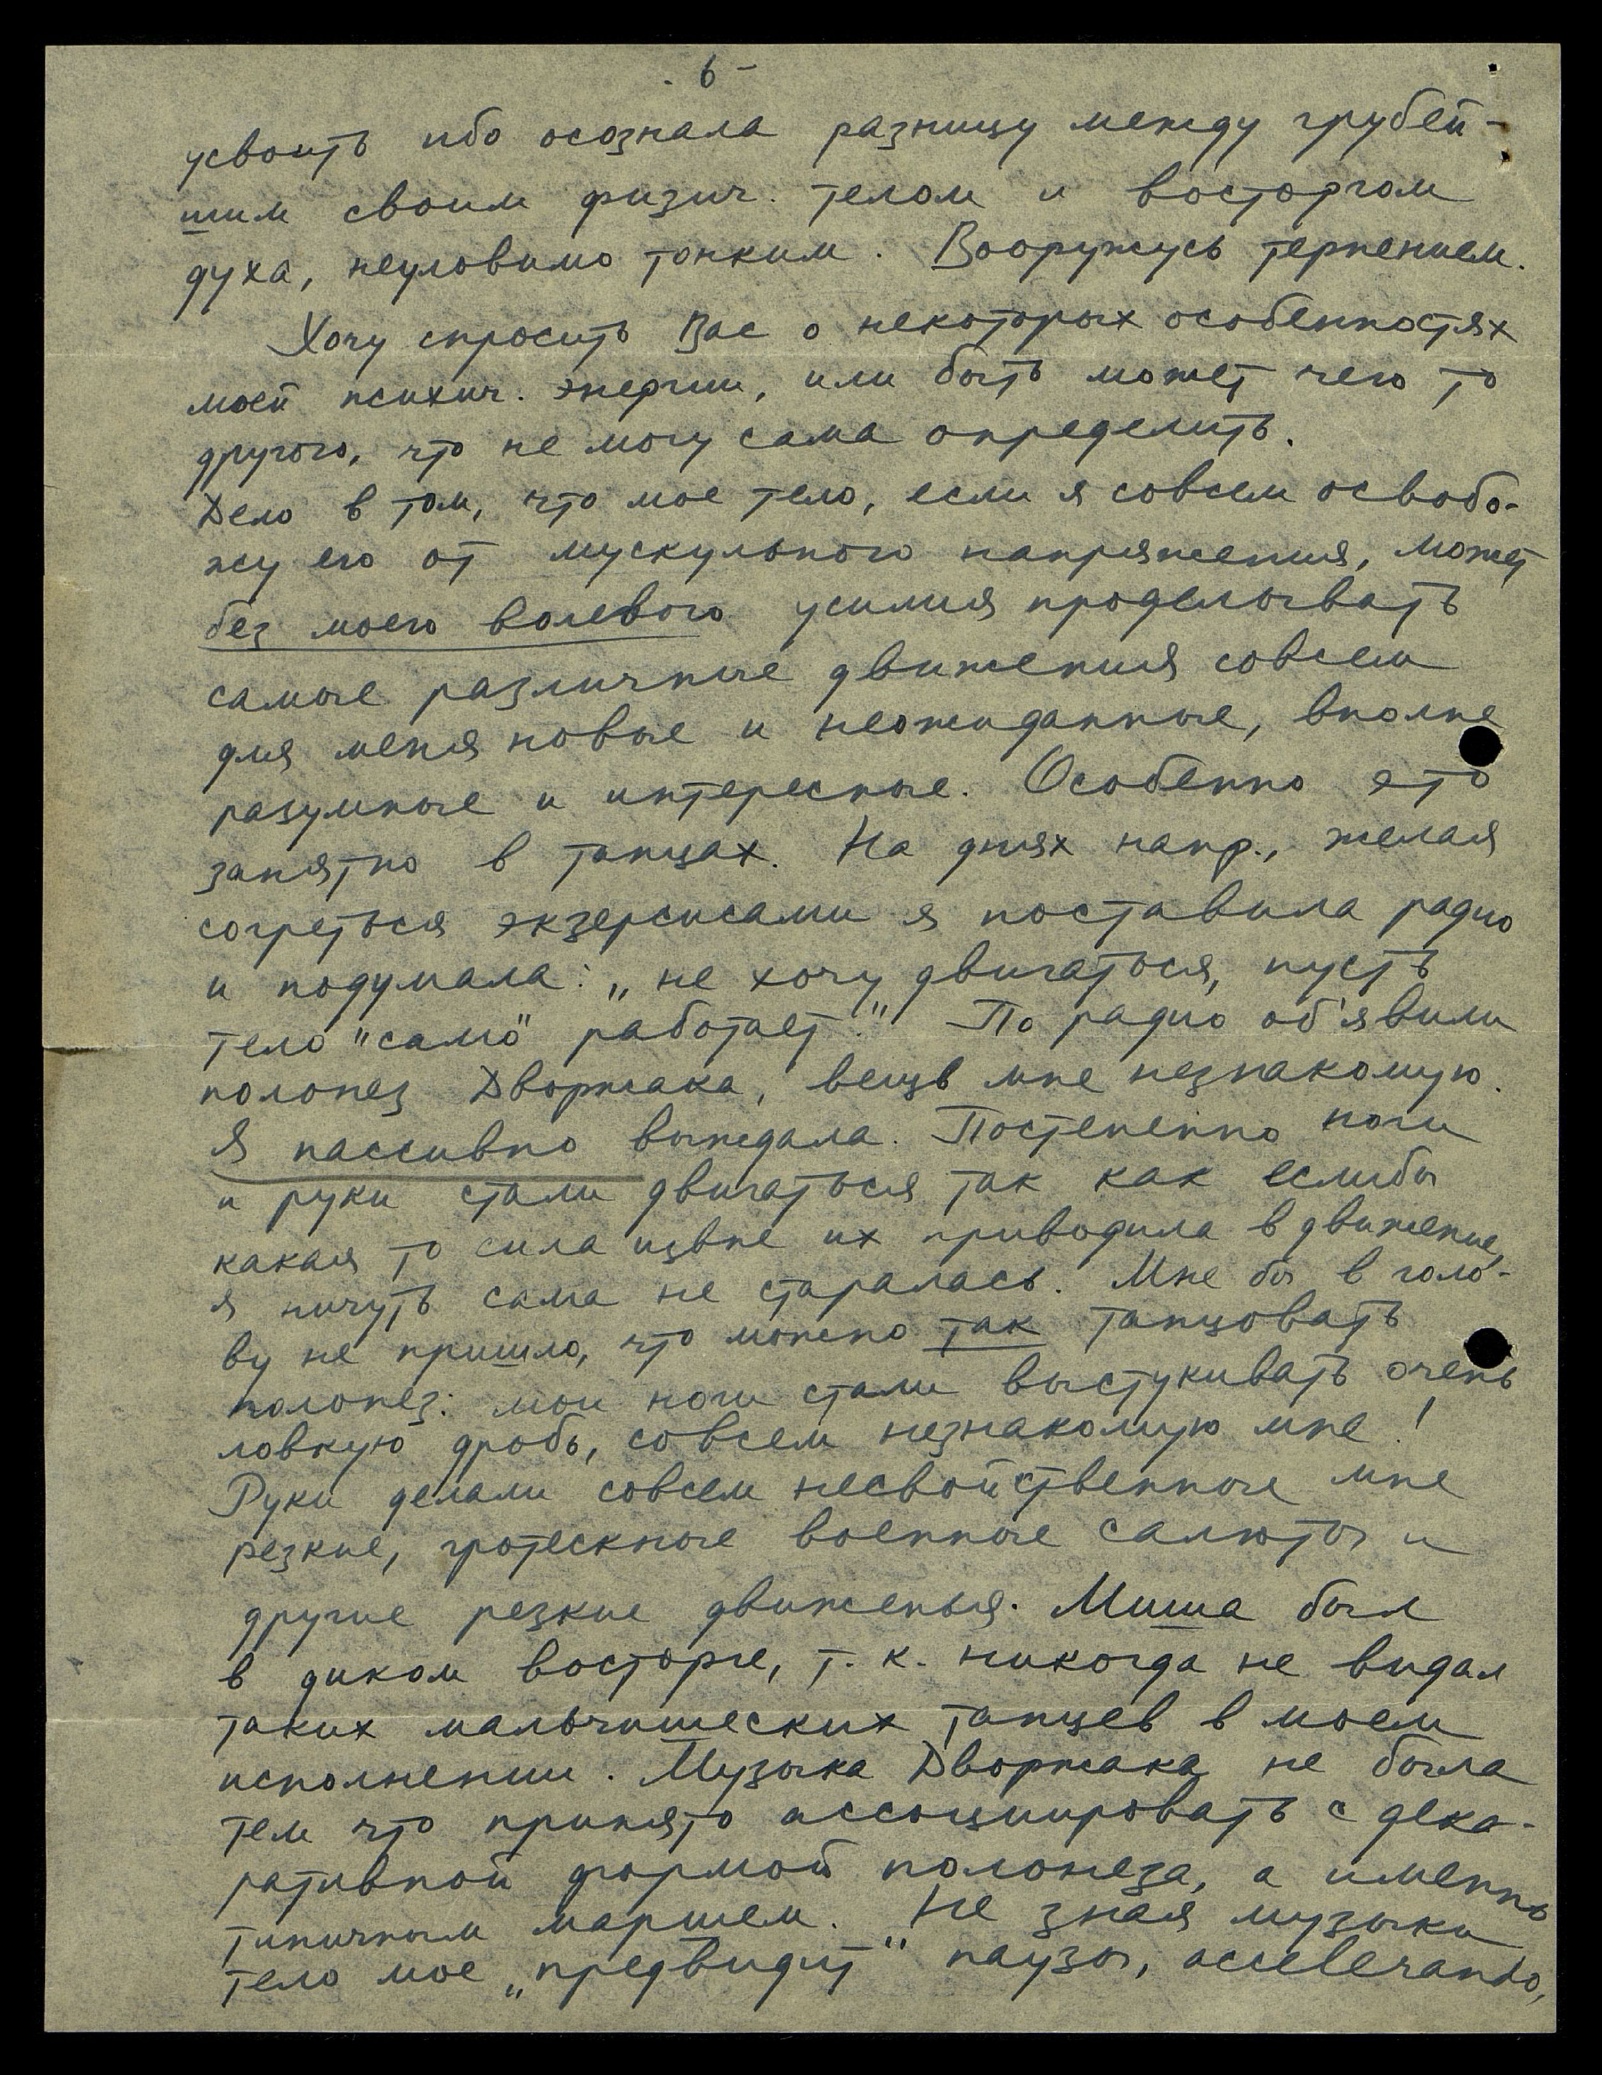 - 6 -
усвоить ибо осознала разницу между грубей-
шим своим физич. телом и восторгом
духа, неуловимо тонким. Вооружусь терпением.
Хочу спросить Вас о некоторых особенностях
моей психич. энергии, или быть может чего то
другого, что не могу сама определить.
Дело в том, что мое тело, если я совсем освобо-
жу его от мускульного напряжения, может
без моего волевого усилия проделывать
самые различные движения совсем
для меня новые и неожиданные, вполне
разумные и интересные. Особенно это
занятно в танцах. На днях напр., желая
согреться экзерсисами я поставила радио
и подумала: „не хочу двигаться, пусть
тело "само" работает." По радио об'явили
полонез Дворжака, вещь мне незнакомую.
Я пассивно выждала. Постепенно ноги
и руки стали двигаться так как еслибы
какая то сила извне их приводила в движение,
я ничуть сама не старалась. Мне бы в голо-
ву не пришло, что можно так танцовать
полонез: мои ноги стали выстукивать очень
ловкую дробь, совсем незнакомую мне!
Руки делали совсем несвойственные мне
резкие, гротескные военные салюты и
другие резкие движенья. Миша был
в диком восторге, т. к. никогда не видал
таких мальчишеских танцев в моем
исполнении. Музыка Дворжака не была
тем что принято ассоциировать с дека-
ративной формой полонеза, а именно
типичным маршем. Не зная музыки
тело мое „предвидит" паузы, accelerando,